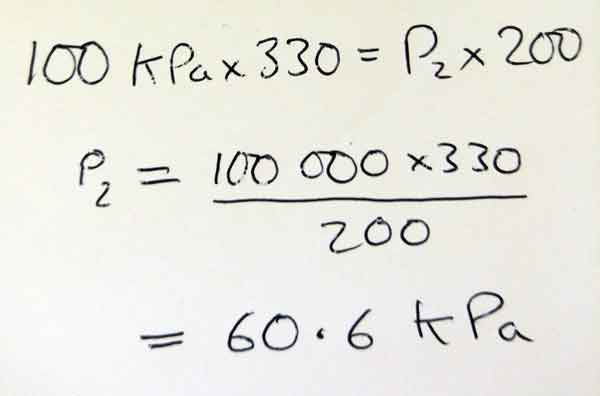 100 kPa × 330 = P₂ × 200
P₂ = 100 000 × 330
200
= 60.6 kPa